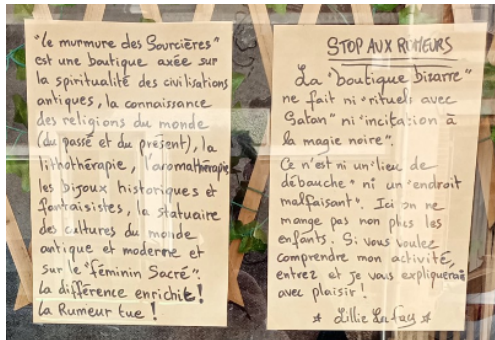 "le murmure des Sourcières"
est une boutique axée sur
la spiritualité des civilisations
antiques, la connaissance
des religions du monde
(du passé et du présent), la
lithothérapie, l'aromathérapie
les bijoux historiques et
fantaisistes, la statuaire
des cultures du monde
antique et moderne et
sur le "féminin Sacré".
la différence enrichit !
la Rumeur tue !
STOP AUX RUMEURS
La "boutique bizarre"
ne fait ni "rituels avec
Satan" ni "incitation à
la magie noire".
Ce n'est ni un "lieu de
débauche" ni un "endroit
malfaisant". Ici on ne
mange pas non plus les
enfants. Si vous voulez
comprendre mon activité,
entrez et je vous expliquerai
avec plaisir !
* Lillie La fay *